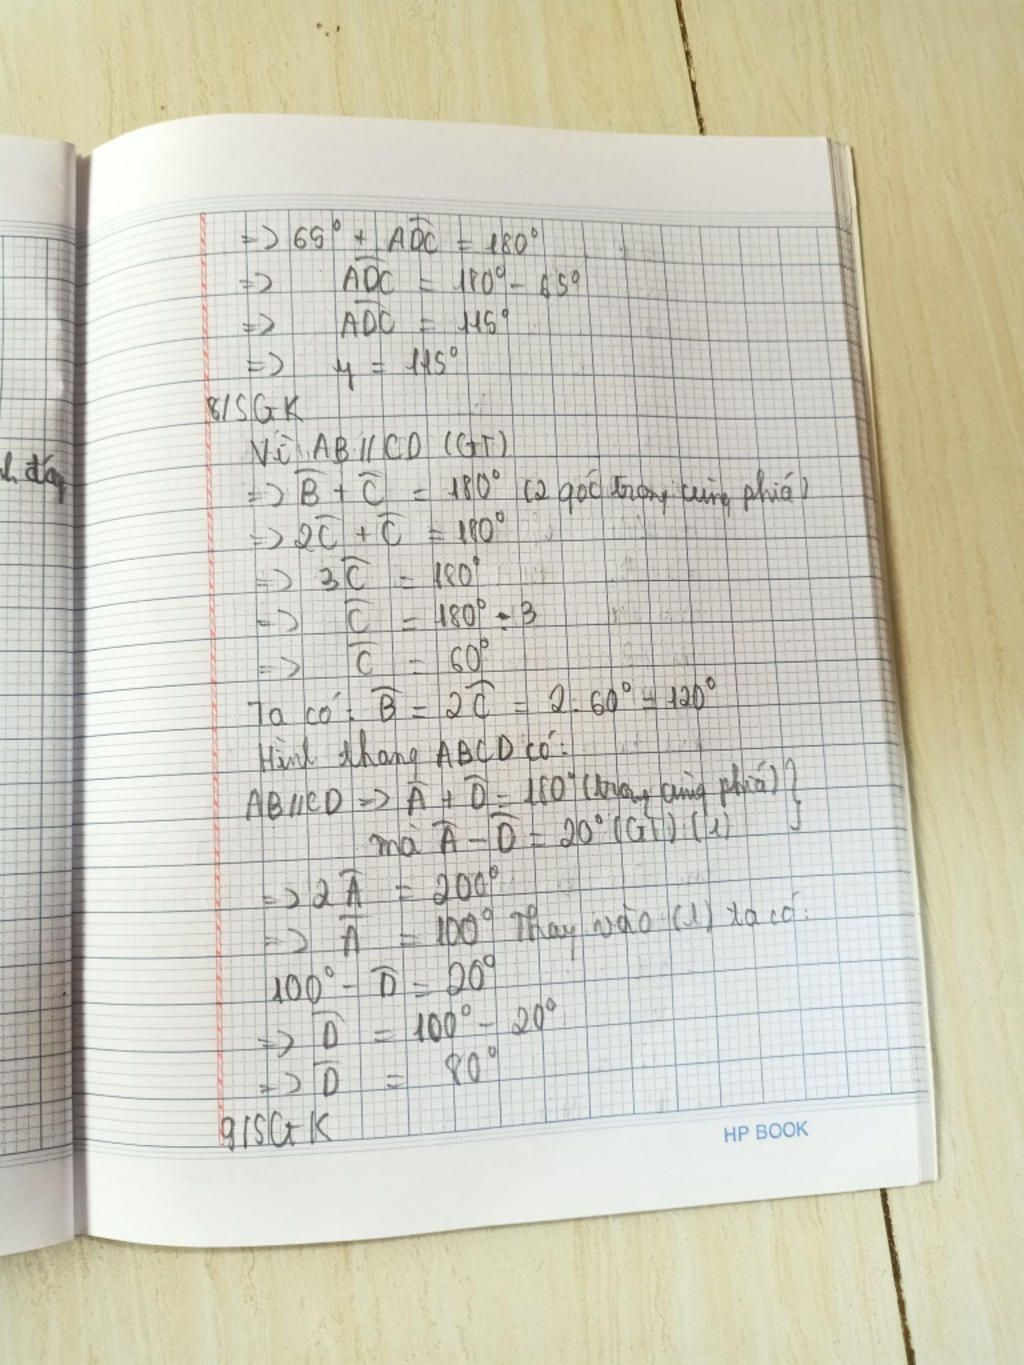 => 65° + ADC = 180°
=> ADC = 180° - 65°
=> ADC = 115°
=> y = 115°
8/SGK
Vì AB//CD (GT)
đáy
=> B + C = 180° (2 góc trong cùng phía)
=> 2C + C = 180°
=> 3C = 180°
=> C = 180° : 3
=> C = 60°
Ta có: B = 2C = 2. 60° = 120°
Hình thang ABCD có:
AB//CD => A + D = 180° (trong cùng phía) }
mà A - D = 20° (GT) (1)
=> 2A = 200°
=> A = 100° Thay vào (1) ta có:
100° - D = 20°
=> D = 100° - 20°
=> D = 80°
9/SGK
HP BOOK